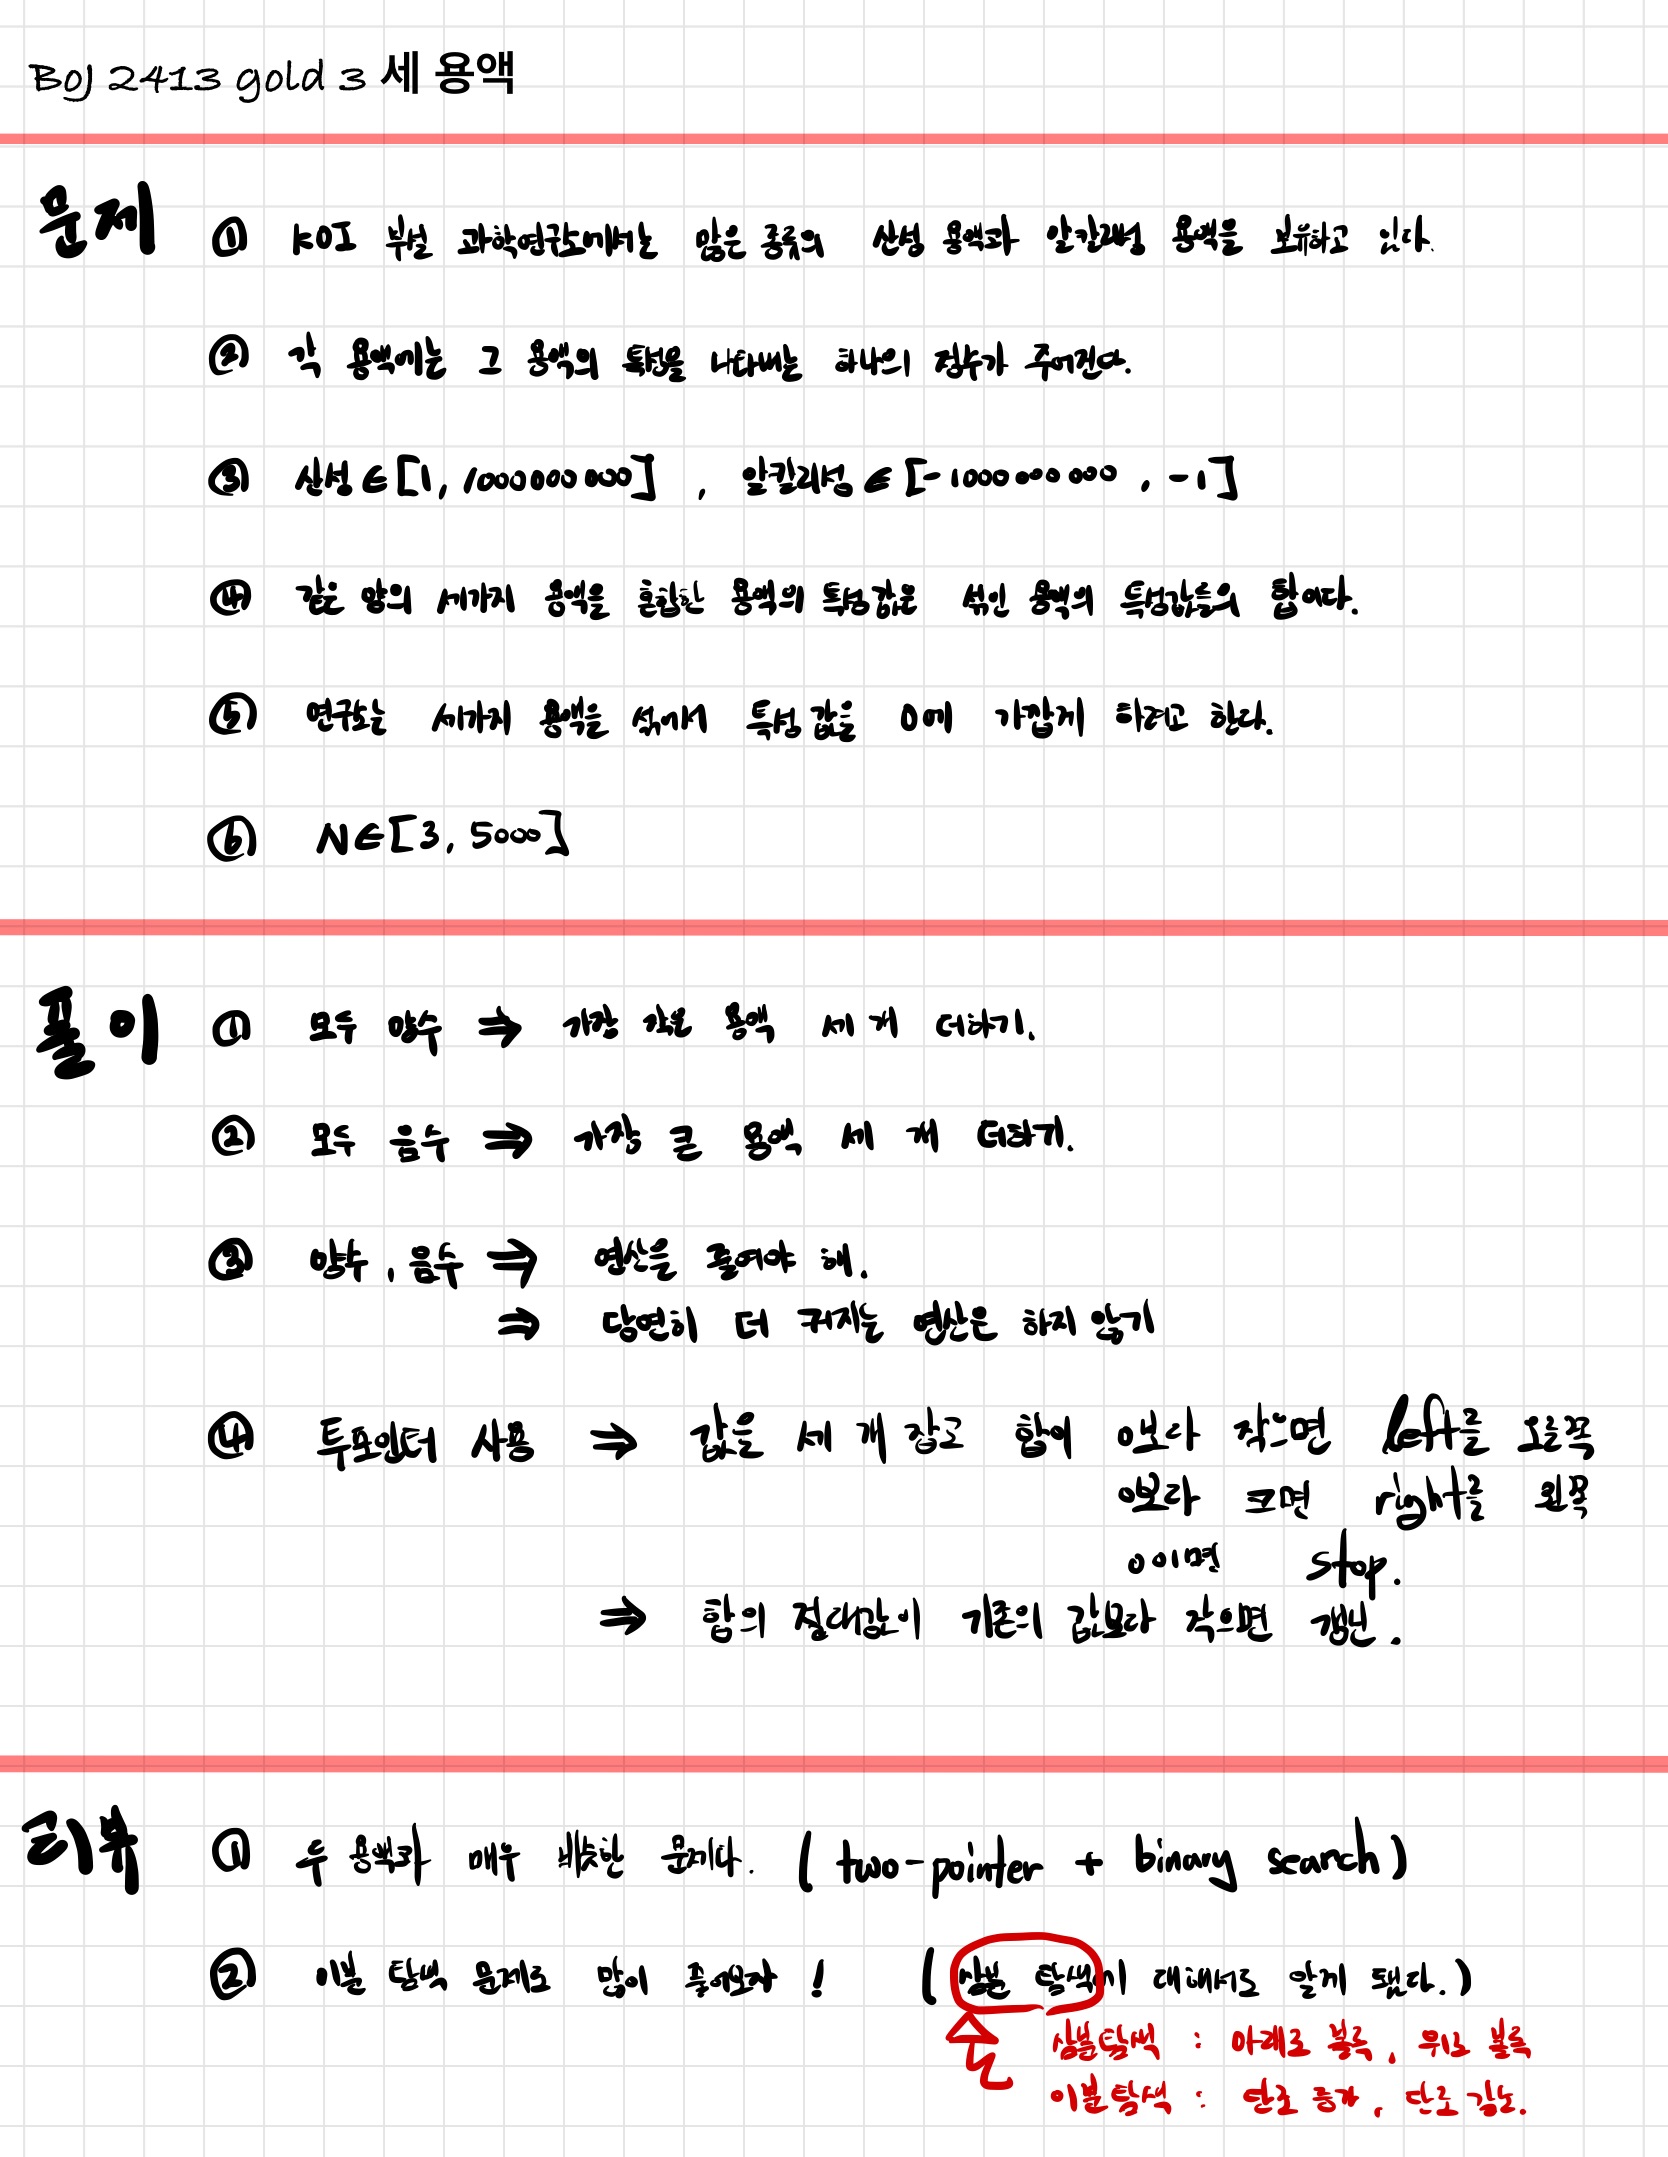 BOJ 2413 gold 3 세 용액
문제 ① KOI 부설 과학연구소에서는 많은 종류의 산성 용액과 알칼리성 용액을 보유하고 있다.
② 각 용액에는 그 용액의 특성을 나타내는 하나의 정수가 주어진다.
③ 산성 ∈ [1, 1000000000] , 알칼리성 ∈ [-1000000000 , -1]
④ 같은 양의 세가지 용액을 혼합한 용액의 특성값은 섞인 용액의 특성값들의 합이다.
⑤ 연구소는 세가지 용액을 섞어서 특성값을 0에 가깝게 하려고 한다.
⑥ N ∈ [3, 5000]
풀이 ① 모두 양수 ⇒ 가장 작은 용액 세 개 더하기.
② 모두 음수 ⇒ 가장 큰 용액 세 개 더하기.
③ 양수, 음수 ⇒ 연산을 줄여야 해.
⇒ 당연히 더 커지는 연산은 하지 않기
④ 투포인터 사용 ⇒ 값을 세 개 잡고 합이 0보다 작으면 left를 오른쪽
0보다 크면 right를 왼쪽
0이면 stop.
⇒ 합의 절대값이 기존의 값보다 작으면 갱신.
리뷰 ① 두 용액과 매우 비슷한 문제다. ( two-pointer + binary search )
② 이분 탐색 문제로 많이 풀어보자 ! ( 삼분 탐색에 대해서도 알게 됐다. )
삼분탐색 : 아래로 볼록, 위로 볼록
이분탐색 : 단조 증가, 단조 감소.